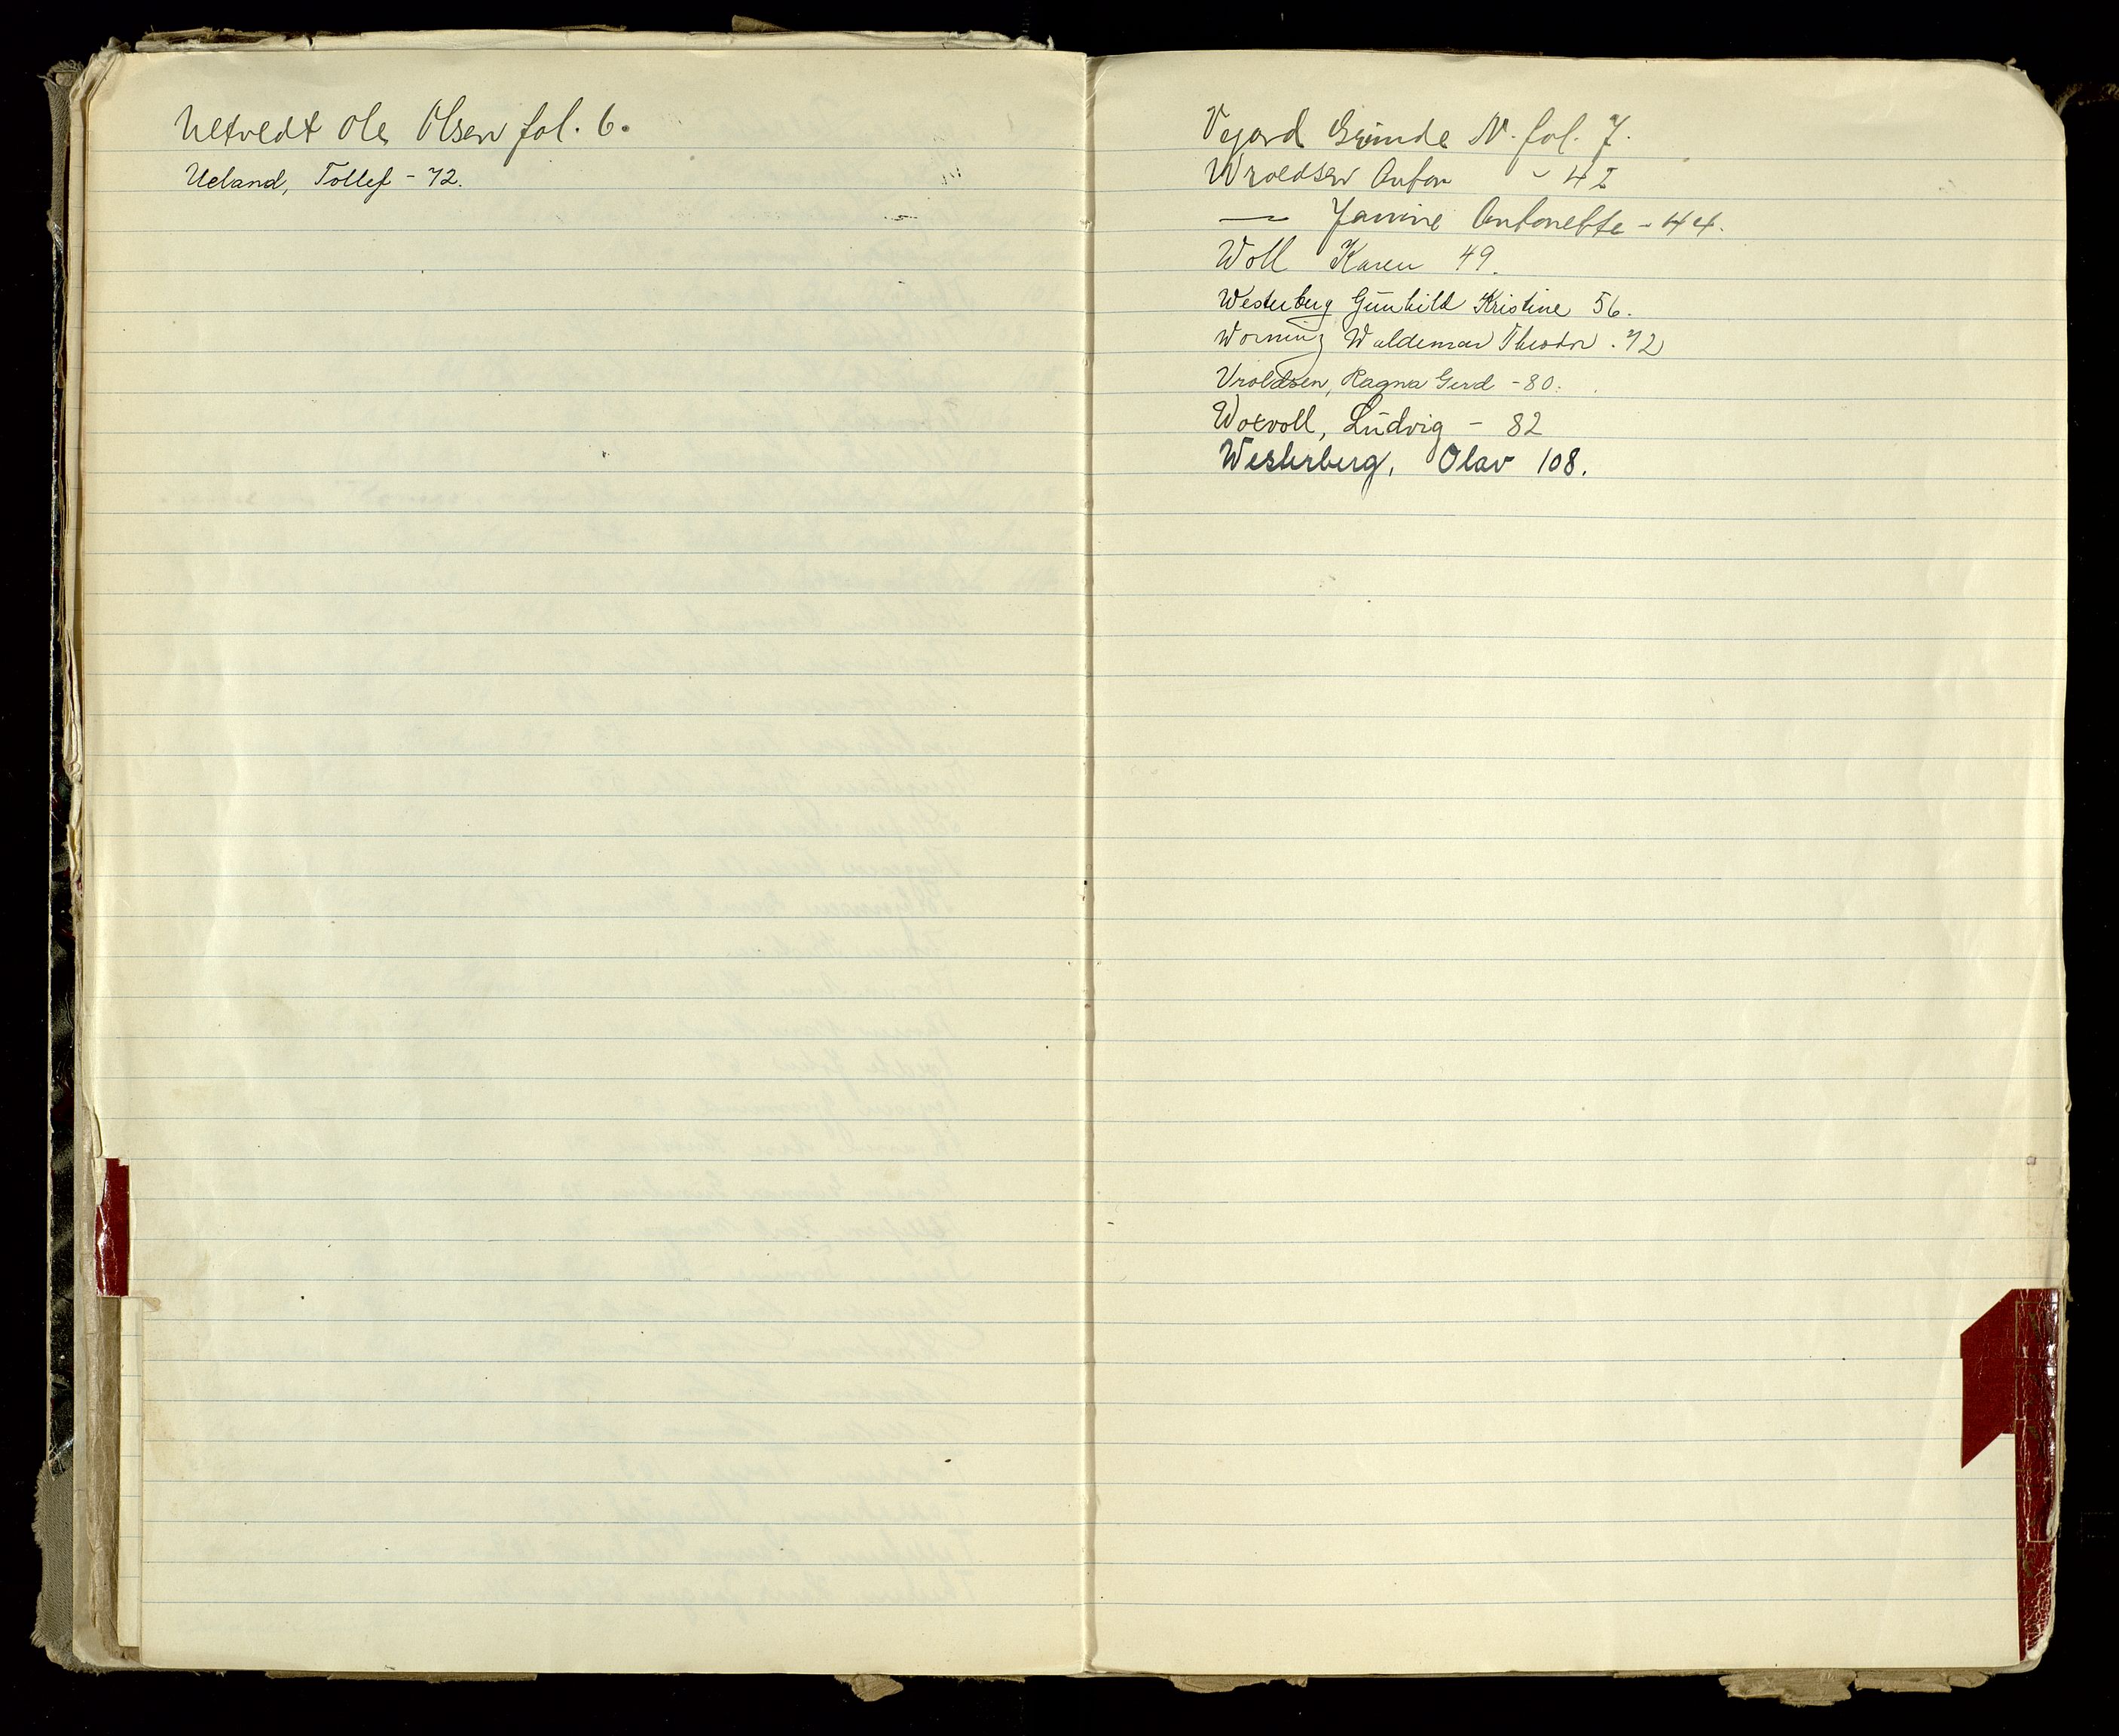 Uetvedt Ole Olsen fol. 6.
Ueland, Tollef - 72.
Vegard Gunde N. fol. 7.
Wroldsen Anton - 42
— Janine Antonette - 44.
Woll Karen 49.
Westerberg Gunhild Kristine 56.
Worning Waldemar Theodor. 72
Vroldsen, Ragna Gerd - 80.
Woxvoll, Ludvig - 82
Westerberg, Olav 108.